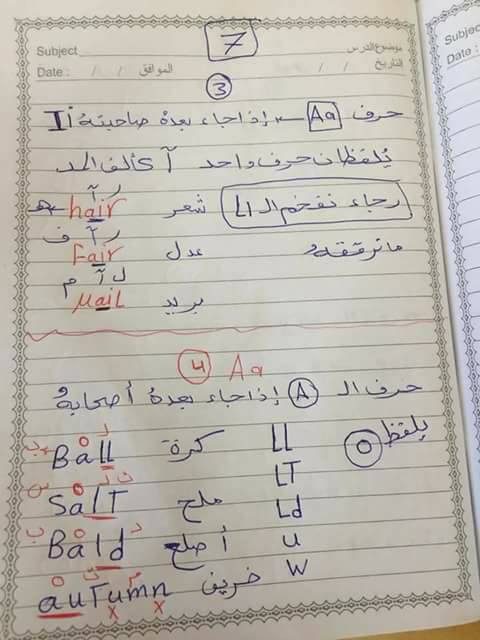 7
Subject موضوع الدرس
Date : / / الموافق / / التاريخ
3
حرف Aa ← إذا جاء بعده صاحبته Ii
يُلفظان حرف واحد آ كألف المد
رجاء نفخم الـ ai شعر hair
ر آ هـ
ما نرققه عدل Fair
ر آ ف
بريد Mail
ل آ م
4 Aa
حرف الـ A إذا جاء بعده أصحابه
يلفظ O
LL كرة Ball
ب o ل
LT
ملح SalT
س o ل ت
Ld
أصلع Bald
ب o د
u
w
خريف auTumn
o ت م
x x